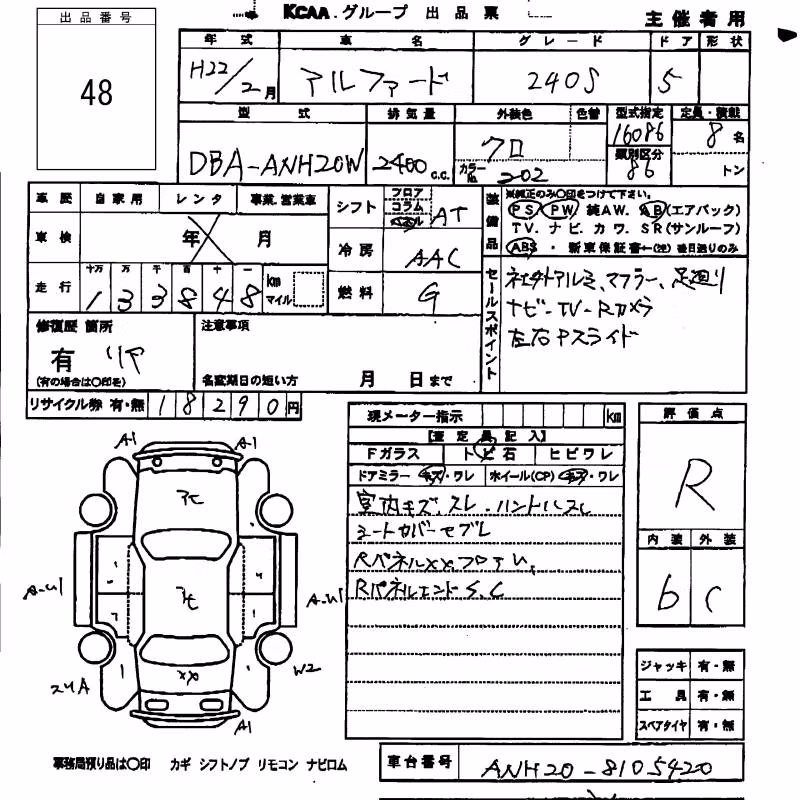 KCAA.グループ 出品票
主催者用
出品番号
48
年式 車名 グレード ドア 形状
H22/2月 アルファード 240S 5
型式 排気量 外装色 色替 型式指定 定員・積載
DBA-ANH20W 2400c.c. クロ カラーNo. 202 16086 8名
類別区分 86 トン
車歴 自家用 レンタ 事業.営業車
車検 年 月
走行 十万 万 千 百 十 一 km マイル
1 3 3 8 4 8
シフト フロア コラム パネル AT
冷房 AAC
燃料 G
装備品 ※純正のみ〇印をつけて下さい。
PS PW 純AW. AB(エアバック)
TV. ナビ. カワ. SR(サンルーフ)
ABS・新車保証書←(注) 後日送りのみ
セールスポイント
社外アルミ、マフラー、足廻り
ナビ-TV-Rカメラ
左右Pスライド
修復歴 箇所 注意事項
有 リヤ
(有の場合は〇印を) 名変期日の短い方 月 日まで
リサイクル券 有・無 18290円
現メーター指示 km
【査定員記入】
Fガラス トビ石 ヒビワレ
ドアミラー キズ・ワレ ホイール(CP) キズ・ワレ
室内キズ、スレ、ハンドルスレ
シートカバーヤブレ
RパネルXX、フロアU、
RパネルエンドS、C
評価点
R
内装 外装
b C
ジャッキ 有・無
工具 有・無
スペアタイヤ 有・無
A1 A1
アモ
アモ
A-U1 A-U1
XX
W2
A1
事務局預り品は〇印 カギ シフトノブ リモコン ナビロム
車台番号 ANH20-8105420